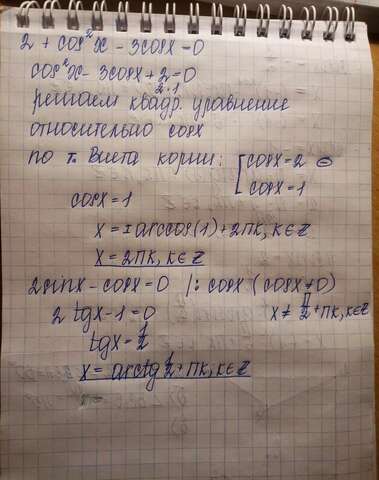 2 + cos²x - 3cosx = 0
cos²x - 3cosx + 2 = 0
2·1
решаем квадр. уравнение
относительно cosx
по т. Виета корни: [ cosx = 2 ⊖
cosx = 1
cosx = 1
x = ± arccos(1) + 2πk, k∈Z
x = 2πk, k∈Z
2sinx - cosx = 0 |: cosx (cosx ≠ 0)
2 tgx - 1 = 0 x ≠ π/2 + πk, k∈Z
tgx = 1/2
x = arctg 1/2 + πk, k∈Z